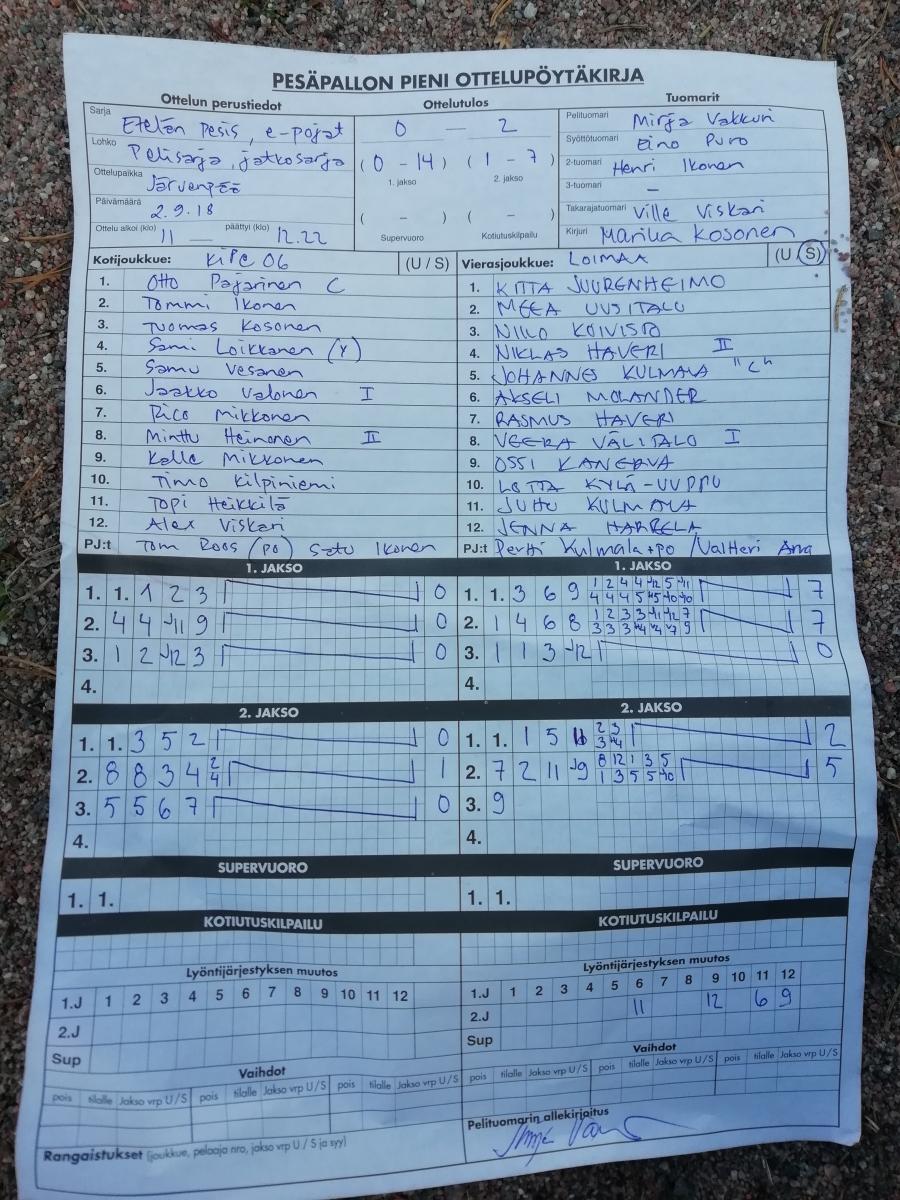 PESÄPALLON PIENI OTTELUPÖYTÄKIRJA
Ottelun perustiedot Ottelutulos Tuomarit
Sarja Etelän Pesis, e-pojat
Lohko Pelisarja, jatkosarja
Ottelupaikka Järvenpää
Päivämäärä 2.9.18
Ottelu alkoi (klo) 11 — päättyi (klo) 12.22
0 — 2
(0 - 14) (1 - 7)
1. jakso 2. jakso
( - ) ( - )
Supervuoro Kotiutuskilpailu
Pelituomari Mirja Vakkuri
Syöttötuomari Eino Puro
2-tuomari Henri Ikonen
3-tuomari —
Takarajatuomari Ville Viskari
Kirjuri Marika Kosonen
Kotijoukkue: KiPe 06 (U / S)
1. Otto Pajarinen C
2. Tommi Ikonen
3. Tuomas Kosonen
4. Sami Loikkanen (Y)
5. Samu Vesanen
6. Jaakko Valonen I
7. Rico Mikkonen
8. Minttu Heinonen II
9. Kalle Mikkonen
10. Timo Kilpiniemi
11. Topi Heikkilä
12. Alex Viskari
PJ:t Tom Roos (po) Satu Ikonen
Vierasjoukkue: LOIMAA (U / S)
1. KITTA JUURENHEIMO
2. MEEA UUSITALO
3. NIILO KOIVISTO
4. NIKLAS HAVERI II
5. JOHANNES KULMALA "C"
6. AKSELI MOLANDER
7. RASMUS HAVERI
8. VEERA VÄLITALO I
9. OSSI KANERVA
10. LOTTA KYLÄ-UVPPU
11. JUHO KULMALA
12. JENNA HARRELA
PJ:t Pertti Kulmala +po / Valtteri
1. JAKSO
1. 1. 1 2 3 0
2. 4 4 11 9 0
3. 1 2 12 3 0
4.
2. JAKSO
1. 1. 3 5 2 0
2. 8 8 3 4 2 4 1
3. 5 5 6 7 0
4.
SUPERVUORO
1. 1.
KOTIUTUSKILPAILU
Lyöntijärjestyksen muutos
1.J 1 2 3 4 5 6 7 8 9 10 11 12
2.J
Sup
Vaihdot
pois tilalle Jakso vrp U / S pois tilalle Jakso vrp U / S pois tilalle Jakso vrp U / S
Rangaistukset (joukkue, pelaaja nro, jakso vrp U / S ja syy)
1. JAKSO
1. 1. 3 6 9 1 2 4 4 12 5 11 7
4 4 4 5 5 10 10
2. 1 4 6 8 1 2 3 3 11 12 7 7
3 3 3 4 4 7 9
3. 1 1 3 12 0
4.
2. JAKSO
1. 1. 1 5 2 3 2
3 4
2. 7 2 11 9 8 12 1 3 5 5
1 3 5 5 10
3. 9
4.
SUPERVUORO
1. 1.
KOTIUTUSKILPAILU
Lyöntijärjestyksen muutos
1.J 1 2 3 4 5 6 7 8 9 10 11 12
2.J 11 12 6 9
Sup
Vaihdot
pois tilalle Jakso vrp U / S pois tilalle Jakso vrp U / S pois tilalle Jakso vrp U / S
Pelituomarin allekirjoitus